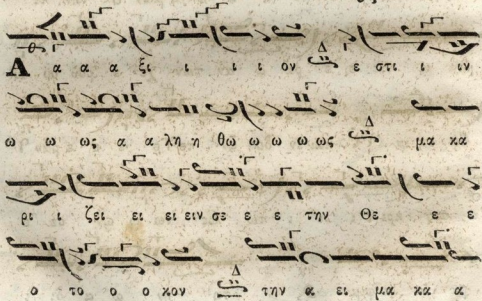 Α α α α ξι ι ι ι ον Δ ε στι ι ιν
ω ω ως α α λη η θω ω ω ω ως Δ μα κα
ρι ι ζει ει ει ειν σε ε ε την Θε ε ε
ο το ο ο κον Δ την α ει μα κα α